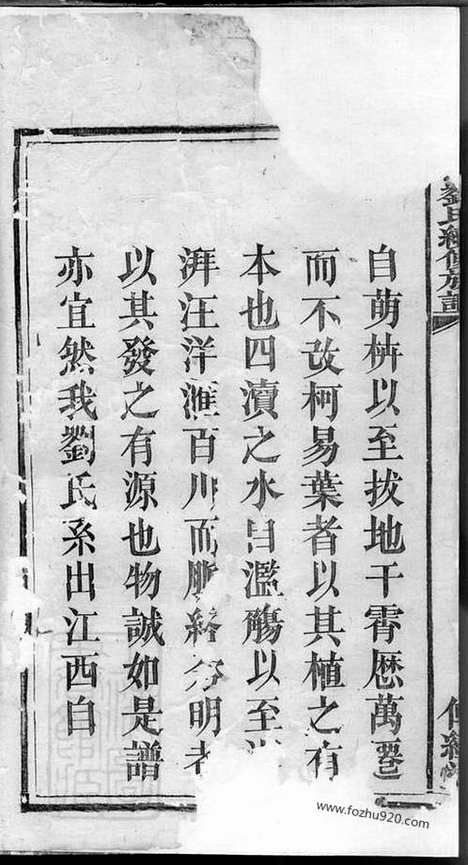 劉氏續修族譜
自萌枿以至拔地干霄歴萬
而不改柯易葉者以其植之有
本也四瀆之水自濫觴以至
湃汪洋滙百川而脈絡分明者
以其發之有源也物誠如是譜
亦宜然我劉氏系出江西自
www.fozhu920.com